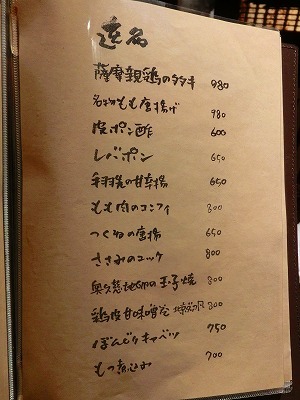 逸品
薩摩親鶏のタタキ 980
名物もも唐揚げ 980
皮ポン酢 600
レバポン 650
手羽先の甘辛揚 650
もも肉のコンフィ 800
つくねの唐揚 650
ささみのユッケ 800
奥久慈地卵の玉子焼 800
鶏皮甘味噌 800
ぼんじりキャベツ 750
もつ煮込み 700